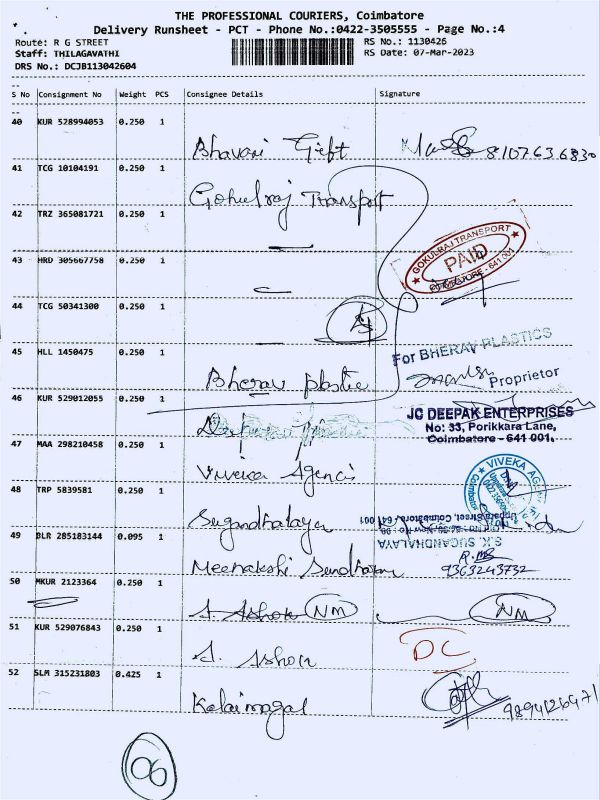 THE PROFESSIONAL COURIERS, Coimbatore
Delivery Runsheet - PCT - Phone No.:0422-3505555 - Page No.:4
Route: R G STREET
RS No.: 1130426
Staff: THILAGAVATHI
RS Date: 07-Mar-2023
DRS No.: DCJB113042604
S No Consignment No Weight PCS Consignee Details Signature
40 KUR 528994053 0.250 1
Bhavani Gift 8107636830
41 TCG 10104191 0.250 1
Gokulraj Transport
42 TRZ 365081721 0.250 1
GOKULRAJ TRANSPORT
PAID
COIMBATORE - 641 001
43 HRD 305667758 0.250 1
44 TCG 50341300 0.250 1
45 HLL 1450475 0.250 1
For BHERAV PLASTICS
Proprietor
Bherav plastic
46 KUR 529012055 0.250 1
JC DEEPAK ENTERPRISES
No: 33, Porikkara Lane,
Coimbatore - 641 001.
47 MAA 298210458 1
Viveka Agencis
VIVEKA
Coimbatore
48 TRP 5839581 0.250 1
Sugandhalaya
S.K. SUGANDHALAYA
Street, Coimbatore, 641 001
49 BLR 285183144 0.095 1
Meenakshi Sundharam
9363243732
50 MKUR 2123364 0.250 1
S. Ashok NM NM
51 KUR 529076843 0.250 1
S. Ashok DC
52 SLM 315231803 0.425 1
Kalaimagal 9894126471
06